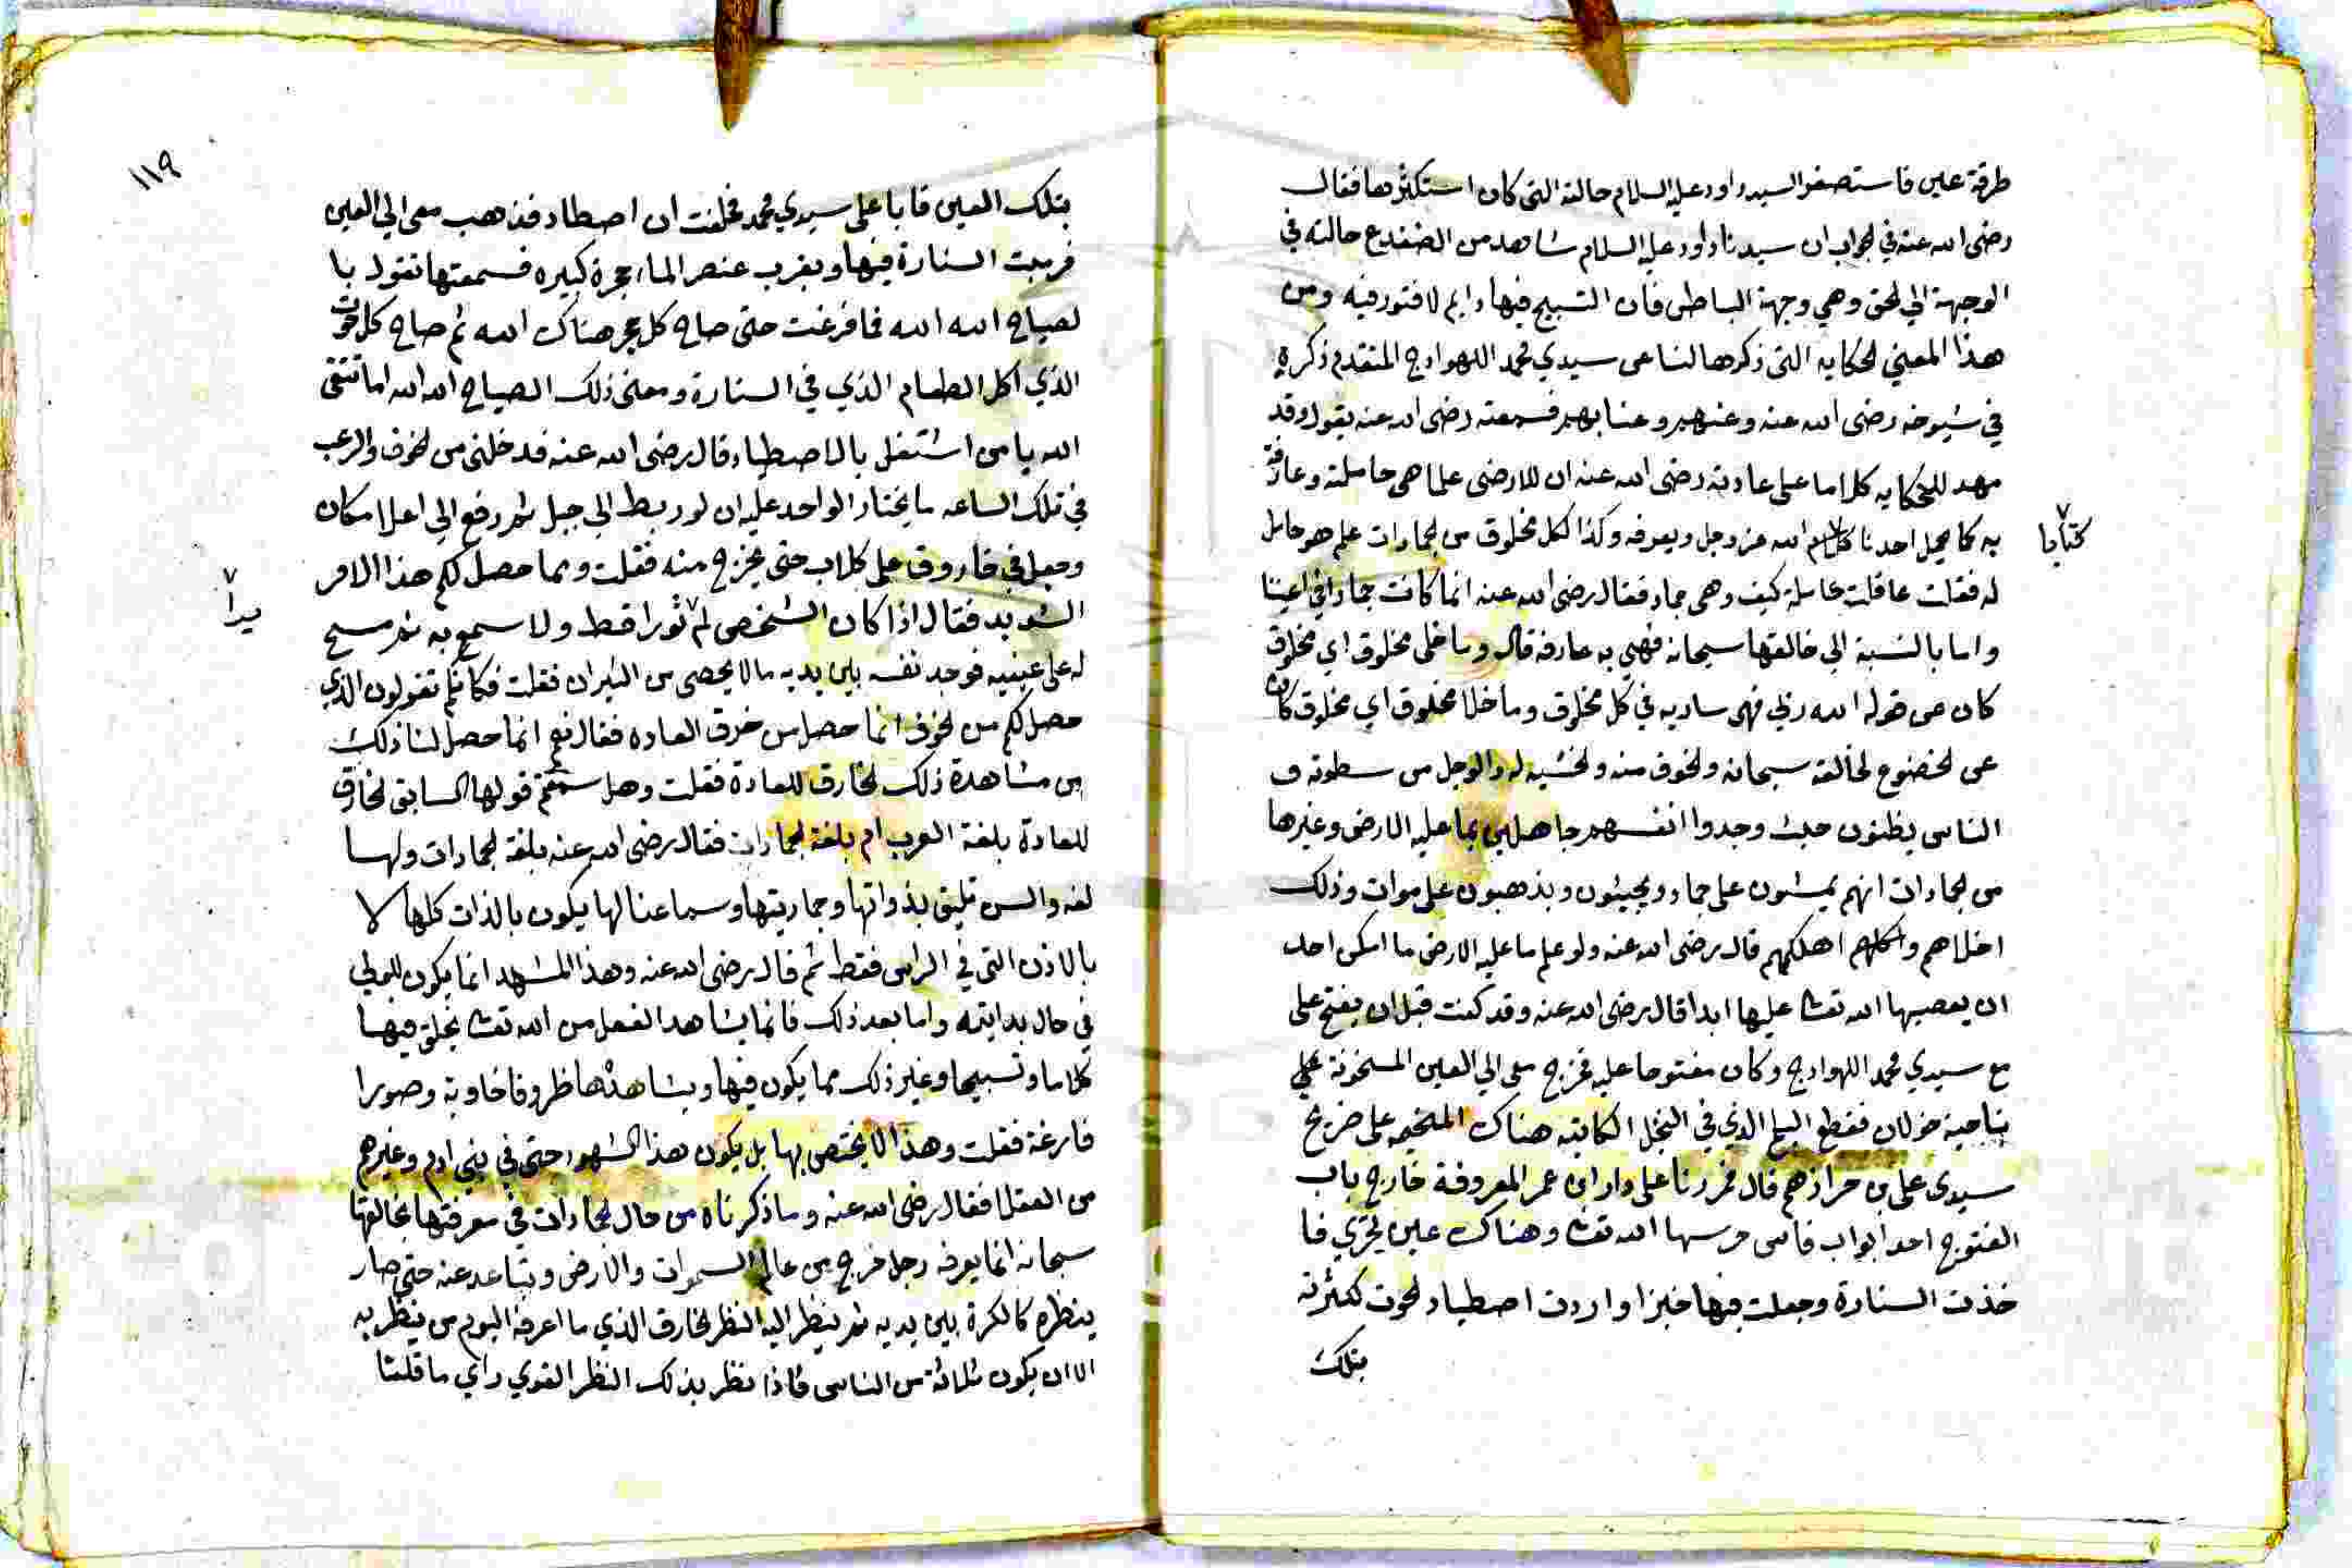 طرفة عين فاستصغر السيد داود عليه السلام حالته التي كان استكثرها فقال
رضى الله عنه في الجواب ان سيدنا داود عليه السلام شاهد من الضفدع حالته في
الوجهة الي الحق وهي وجهة الباطن فان التسبيح فيها دايم لا فتور فيه ومن
هذا المعني الحكايه التى ذكرها لنا عن سيدي محمد اللهواج المتقدم ذكره
في شيوخه رضى الله عنه وعنهم وعنا بهم فسمعته رضى الله عنه يقول وقد
مهد للحكايه كلاما على عادته رضى الله عنه ان للارض علما هى حاملته وعارفة
به كما يحمل احدنا كلام الله عز وجل ويعرفه وكذا لكل مخلوق من الجمادات علم هو حامل
كتابا
له فقلت عاقلت عاملة كيف وهى جماد فقال رضى الله عنه انما كانت جمادا في اعيننا
واما بالنسبة الي خالقها سبحانه فهي به عارفه قال وما خلى مخلوق اي مخلوق
كان عن قوله الله ربي فهى ساريه في كل مخلوق وما خلا مخلوق اي مخلوق كان
عن الخضوع لخالقه سبحانه والخوف منه والخشيه له والوجل من سطوته و
الناس يظنون حيث وجدوا انفسهم جاهلين بما عليه الارض وغيرها
من الجمادات انهم يمشون على جماد ويجيئون ويذهبون على موات وذلك
اخلاهم و اهلكهم قال رضى الله عنه ولو علم ما عليه الارض ما امكن احد
ان يعصيها الله تعالى عليها ابدا قال رضى الله عنه وقد كنت قبل ان يفتح على
مع سيدي محمد اللهواج وكان مفتوحا عليه فخرج معى الي العين المسخونة على
بناحية خولان فقطع البلح الذي في النخل الكائنه هناك على ضريح
سيدى على بن حرازهم قال فمررنا على دار ابن عمر المعروفة خارج باب
الفتوح احد ابواب فاس حرسها الله تعالى وهناك عين تجري فا
خذت السنارة وجعلت فيها خبزا واردت اصطياد الحوت لكثرته
بتلك
١١٩
بتلك العين فابا على سيدي محمد فحلفت ان اصطاد فذهب معى الي العين
فرميت السنارة فيها وبقرب عنصر الماء حجرة كبيره فسمعتها تقول با
لصياح الله الله فما فرغت حتى صاح كل حجر هناك الله ثم صاح كل حوت
الذي اكل الطعام الذي في السنارة ومعنى ذلك الصياح الله الله اما تتقى
الله يا من اشتغل بالاصطياد قال رضى الله عنه فدخلنى من الخوف والرعب
في تلك الساعه ما يختار الواحد عليه ان لو ربط الي حبل ثم رفع الي اعلا مكان
وجعل في خازوق على كلاب حتى يخرج منه فقلت ومما حصل لكم هذا الامر
الشديد فقال اذا كان الشخص لم ثورا قط ولا سمع به ثم مسح
يرا
له على عينيه فوجد نفسه بين يديه ما لا يحصى من الثيران فقلت فكانكم تقولون الذي
حصل لكم من الخوف انما حصل من خرق العاده فقال نعم انما حصل لنا ذلك
من مشاهدة ذلك الخارق للعادة فقلت وهل سمعتم قولها السابق الخارق
للعادة بلغة العرب ام بلغة الجمادات فقال رضى الله عنه بلغة الجمادات ولها
لغه والسن تليق بذواتها وجماديتها وسماعنا لها يكون بالذات كلها لا
بالاذن التى في الراس فقط ثم قال رضى الله عنه وهذا المشهد انما يكون للولي
في حال بدايته واما بعد ذلك فانما يشاهد الفعل من الله تعالى يخلق فيها
كلاما وتسبيحا وغير ذلك مما يكون فيها ويشاهدها ظروفا خاوية وصورا
فارغة فقلت وهذا لا يختص بها بل يكون هذا الشهود حتى في بني ادم وغيرهم
من العقلا فقال رضى الله عنه وما ذكرناه من حال الجمادات في معرفتها بخالقها
سبحانه انما يعرفه رجل خرج من عالم السموات والارض وتباعد عنه حتى صار
ينظره كالكرة بين يديه ثم ينظر اليه النظر الخارق الذي ما اعرف اليوم من ينظر به
الا ان يكون ثلاثة من الناس فاذا نظر بذلك النظر القوي راي ما قلنا